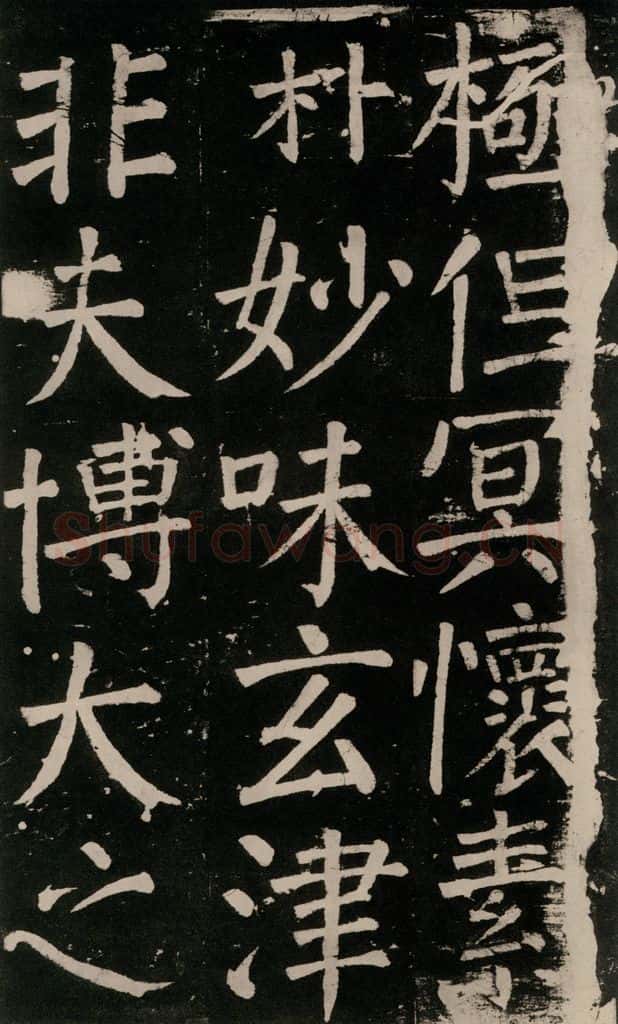 極但冥懷素
朴妙味玄津
非夫博大之
Shufawang.CN